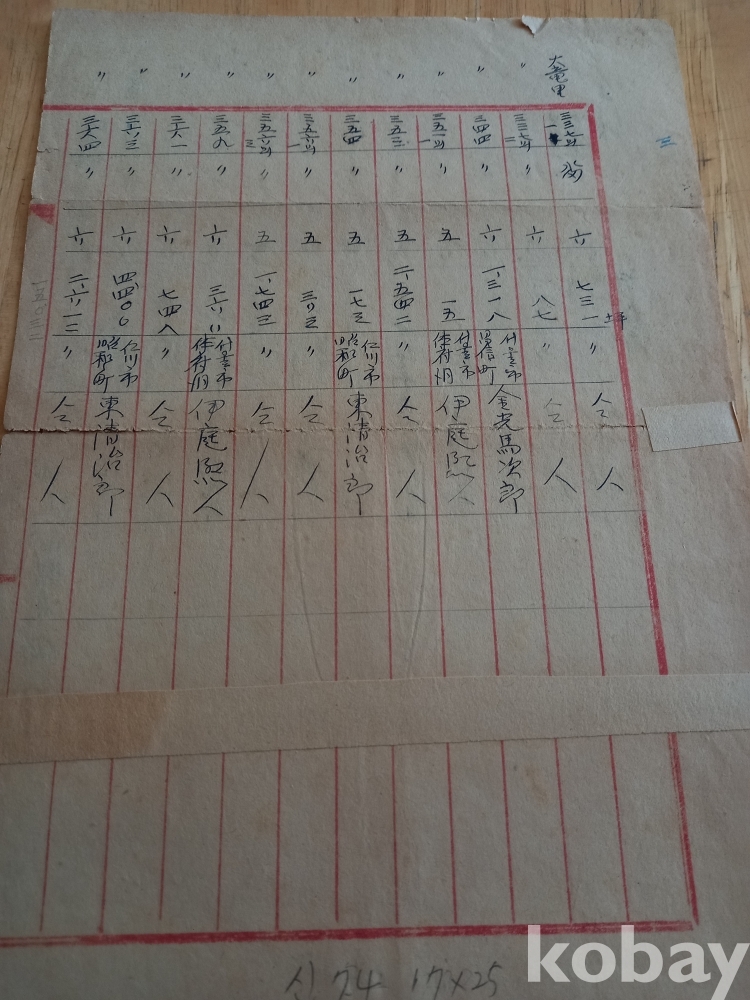 三
大竜里 三三七의一 六 七三一坪 〃 仝人
〃 三三七의二 〃 六 八七 〃 仝人
〃 三四四 〃 六 一、三一八 서울市 金光馬次郎
〃 三五一의一 〃 五 一五 서울市 体府洞 伊庭熙人
〃 三五三 〃 五 二、五四二 〃 仝人
〃 三五四 〃 五 一七三 仁川市 昭和町 東清治郎
〃 三五六의一 〃 五 三〇三 〃 仝人
〃 三五六의三 〃 五 一、七四三 〃 仝人
〃 三五九 〃 六 서울市 体府洞 伊庭熙人
〃 三六一 〃 六 七四八 〃 仝人
〃 三六三 〃 六 四四〇〇 仁川市 昭和町 東清治郎
〃 三六四 〃 六 二、六一二 〃 仝人
一五〇三二
신 74 17×25
kobay